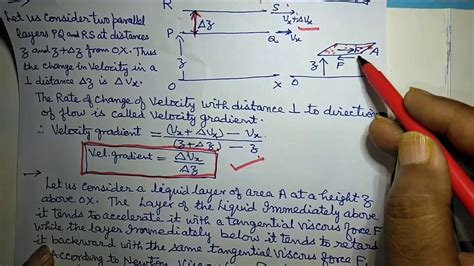 → Let us consider two parallel
layers PQ and RS at distances
z and z+Δz from OX. Thus
the change in velocity in a
⊥ distance Δz is ΔVx
R S Vx+ΔVx
Δz
P Q Vx
z
O X
O
z F F A
The Rate of Change of Velocity with distance ⊥ to direction
of flow is called Velocity gradient.
∴ Velocity gradient = (Vx + ΔVx) - Vx / (z + Δz) - z
Vel. gradient = ΔVx / Δz
→ Let us consider a liquid layer of area A at a height z
above OX. The Layer of the Liquid immediately above
it tends to accelerate it with a tangential viscous force F
while the layer immediately below it tends to retard
it backward with the same tangential viscous force F.
According to Newton